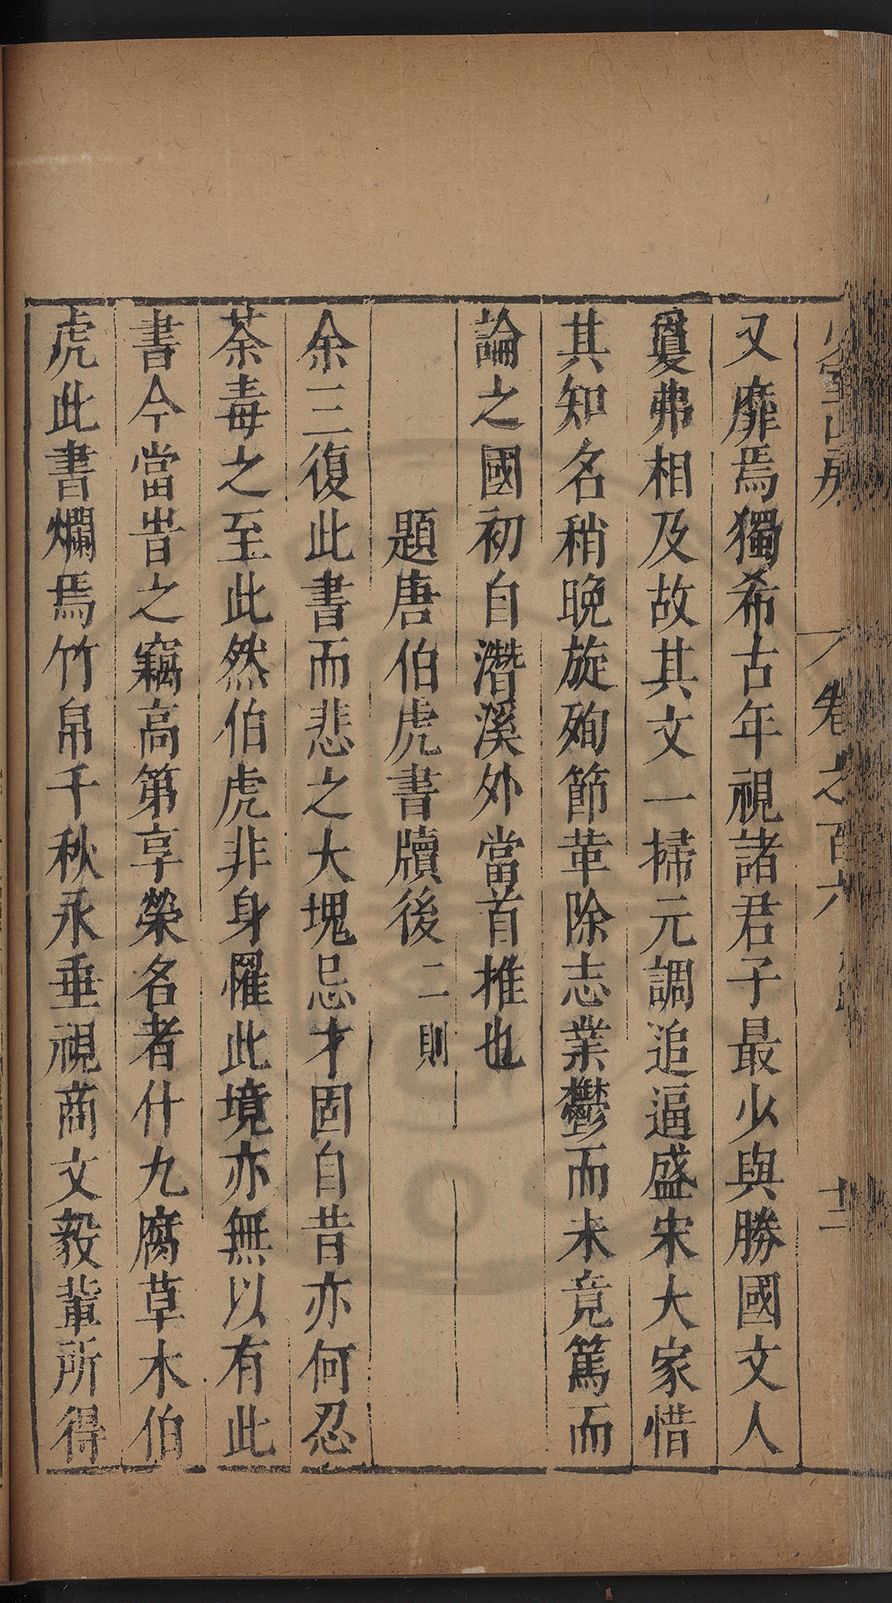 又靡焉獨希古年視諸君子最少與勝國文人
夐弗相及故其文一掃元調追逼盛宋大家惜
其知名稍晚旋殉節革除志業鬱而未竟篤而
論之國初自潛溪外當首推也
題唐伯虎書牘後二則
余三復此書而悲之大塊忌才固自昔亦何忍
荼毒之至此然伯虎非身罹此境亦無以有此
書今當旹之竊高第享榮名者什九腐草木伯
虎此書爛焉竹帛千秋永垂視商文毅輩所得